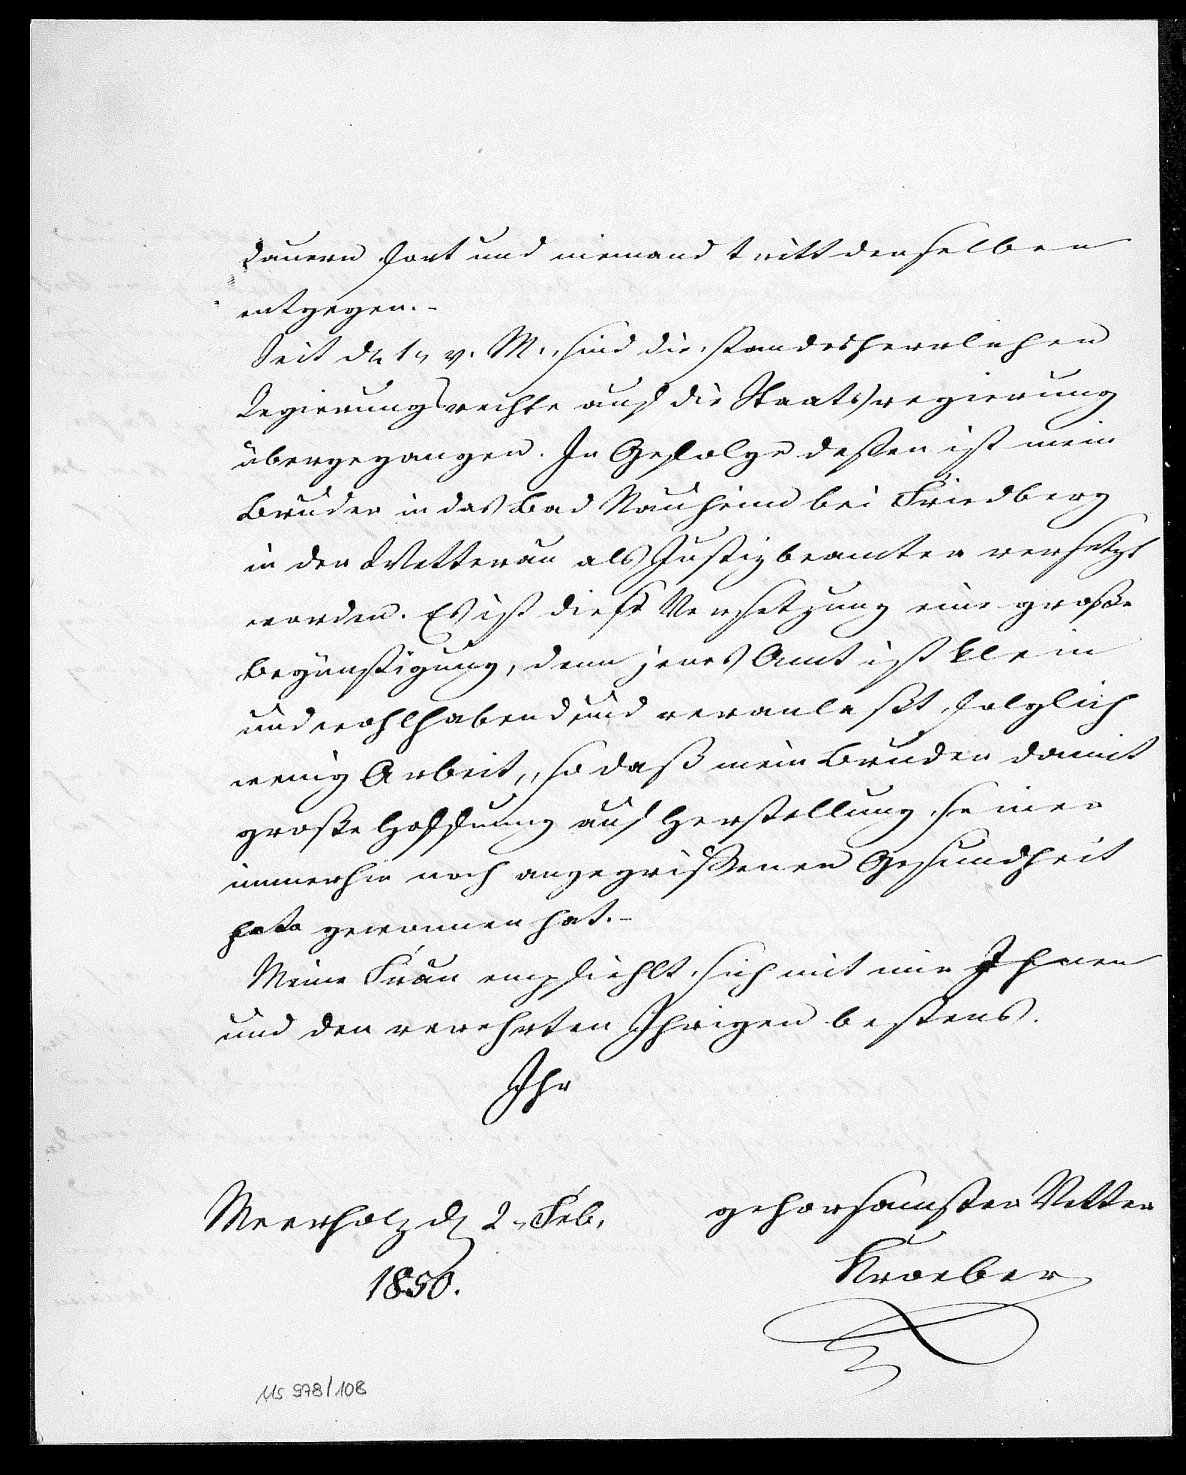 dauern fort und niemand tritt denselben
entgegen.-
Seit d. 1. v. M. sind die standesherrlichen
Regierungsrechte auf die Staatsregierung
übergegangen. In Gefolge deßen ist mein
Bruder in das Bad Nauheim bei Friedberg
in der Wetterau als Justizbeamter versetzt
worden. Es ist diese Versetzung eine große
Begünstigung, denn jenes Amt ist klein
und wohlhabend und veranlaßt folglich
wenig Arbeit, so daß mein Bruder damit
große Hoffnung auf Herstellung seiner
immerhin noch angegriffenen Gesundheit
gewonnen hat.-
Meine Frau empfiehlt sich mit mir Ihnen
und den verehrten Ihrigen bestens.
Ihr
gehorsamster Vetter
Kroeber
Meerholz d. 2. Feb.
1850.
Ms 978/108